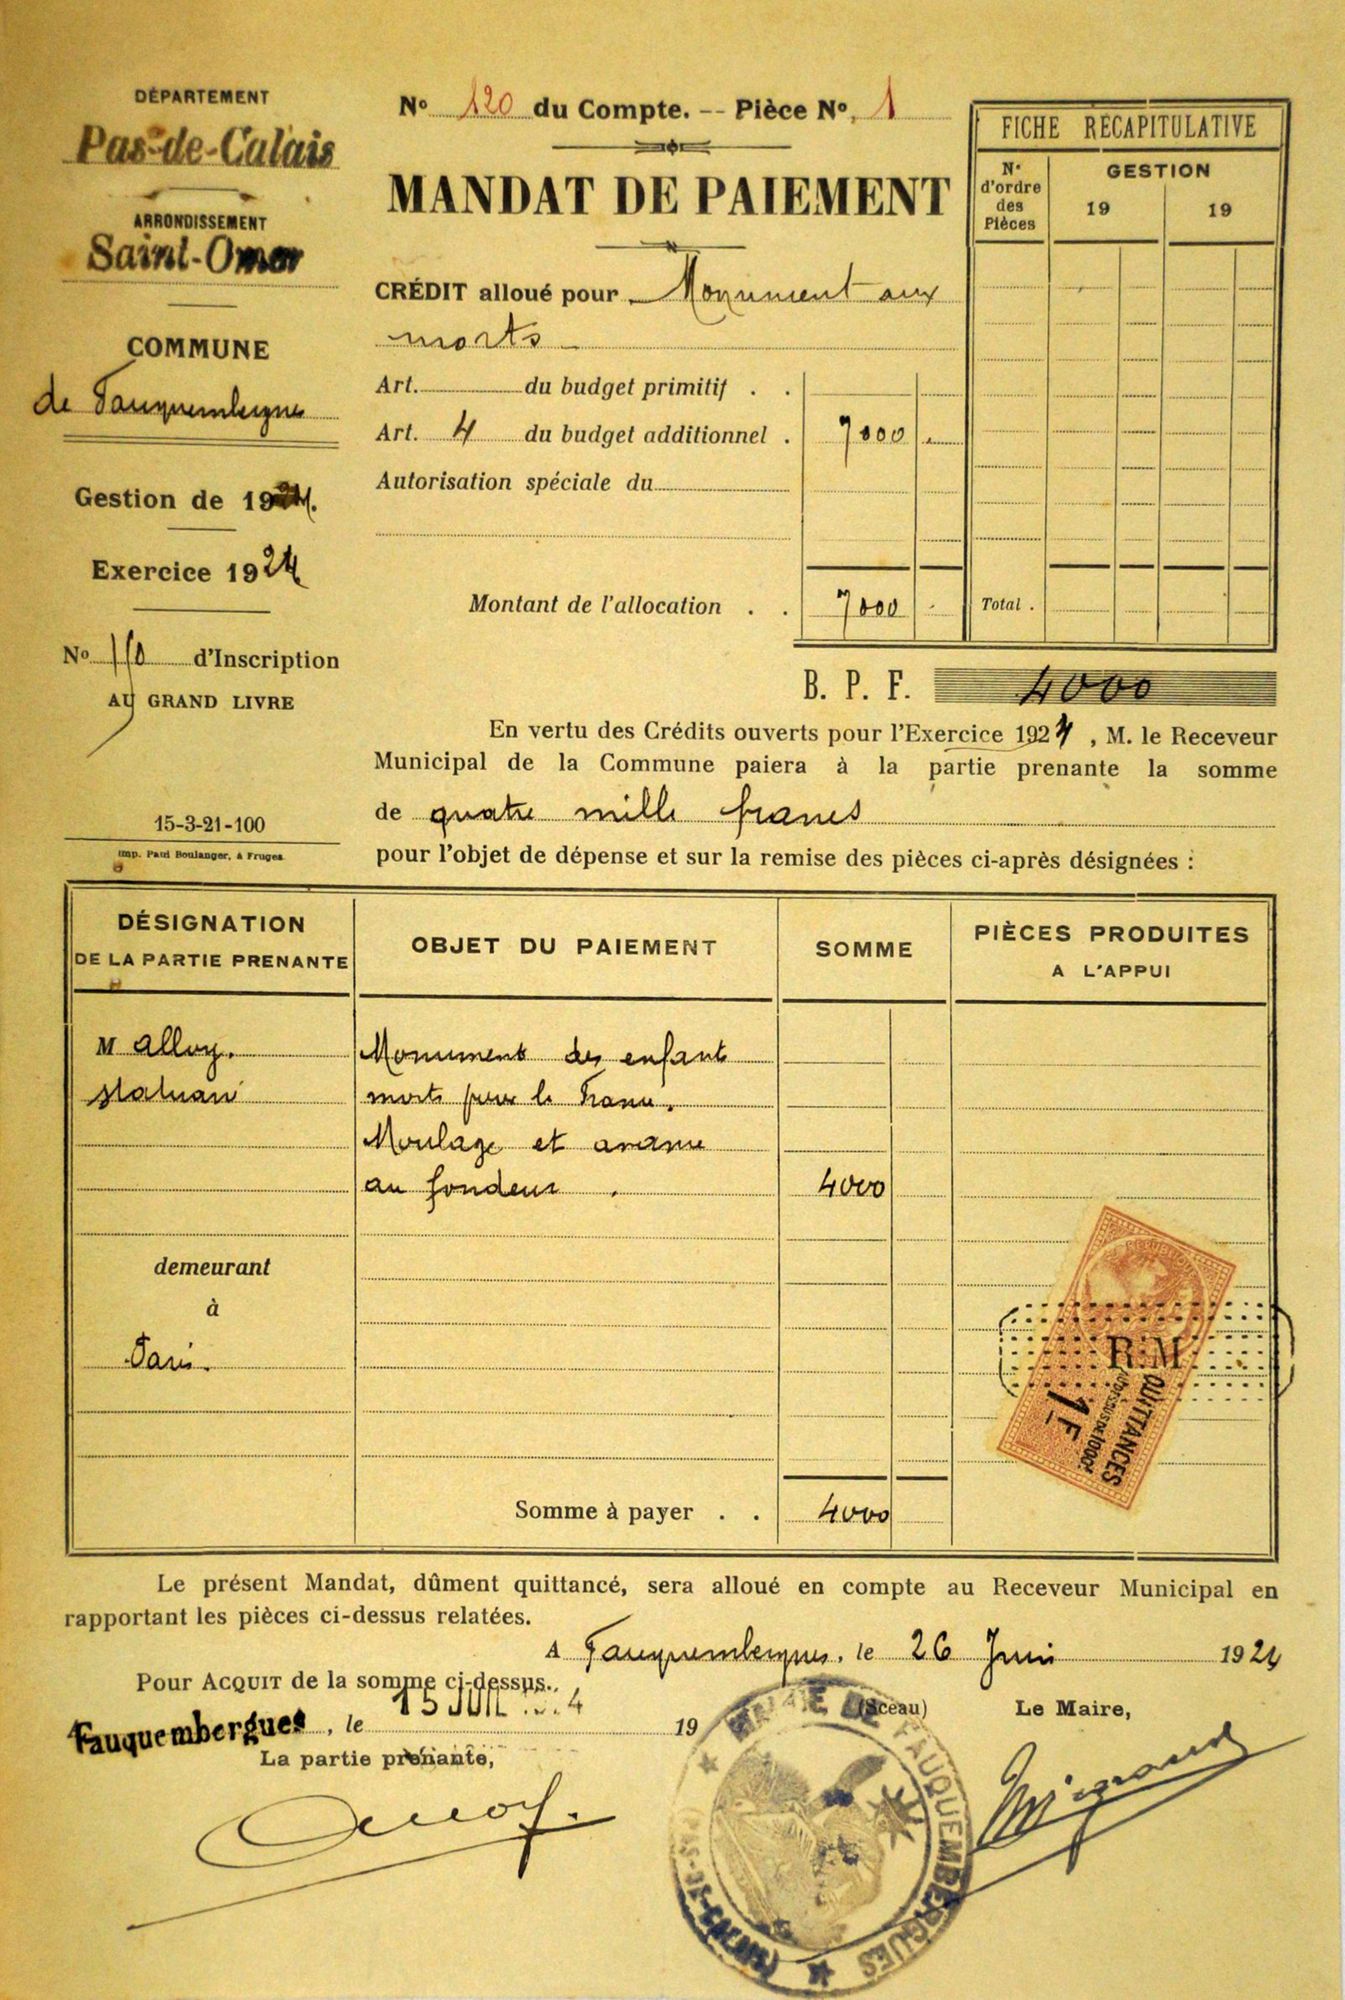 DÉPARTEMENT
Pas-de-Calais
ARRONDISSEMENT
Saint-Omer
COMMUNE
de Fauquembergues
Gestion de 1924.
Exercice 1924
No 110 d'Inscription
AU GRAND LIVRE
15-3-21-100
Imp. Paul Boulanger, à Fruges
No 120 du Compte. -- Pièce No. 1
MANDAT DE PAIEMENT
CRÉDIT alloué pour Monument aux
morts
Art. du budget primitif . .
Art. 4 du budget additionnel . 7000
Autorisation spéciale du
Montant de l'allocation . . 7000
FICHE RÉCAPITULATIVE
No d'ordre des Pièces
GESTION
19 19
Total .
B. P. F. 4000
En vertu des Crédits ouverts pour l'Exercice 1924, M. le Receveur
Municipal de la Commune paiera à la partie prenante la somme
de quatre mille francs
pour l'objet de dépense et sur la remise des pièces ci-après désignées :
DÉSIGNATION
DE LA PARTIE PRENANTE
OBJET DU PAIEMENT
SOMME
PIÈCES PRODUITES
A L'APPUI
M alloy.
statuaire
demeurant
à
Paris.
Monument des enfants
morts pour la France.
Moulage et avance
au fondeur . 4000
RÉPUBLIQUE
R.M
QUITTANCES
AU DESSUS DE 1000f
1F
Somme à payer . . 4000
Le présent Mandat, dûment quittancé, sera alloué en compte au Receveur Municipal en
rapportant les pièces ci-dessus relatées.
A Fauquembergues, le 26 Juin 1924
Pour ACQUIT de la somme ci-dessus.
Fauquembergues, le 15 JUIL 1924 19
La partie prenante,
(Sceau)
Le Maire,
Alloy.
MAIRIE DE FAUQUEMBERGUES
(PAS-DE-CALAIS)